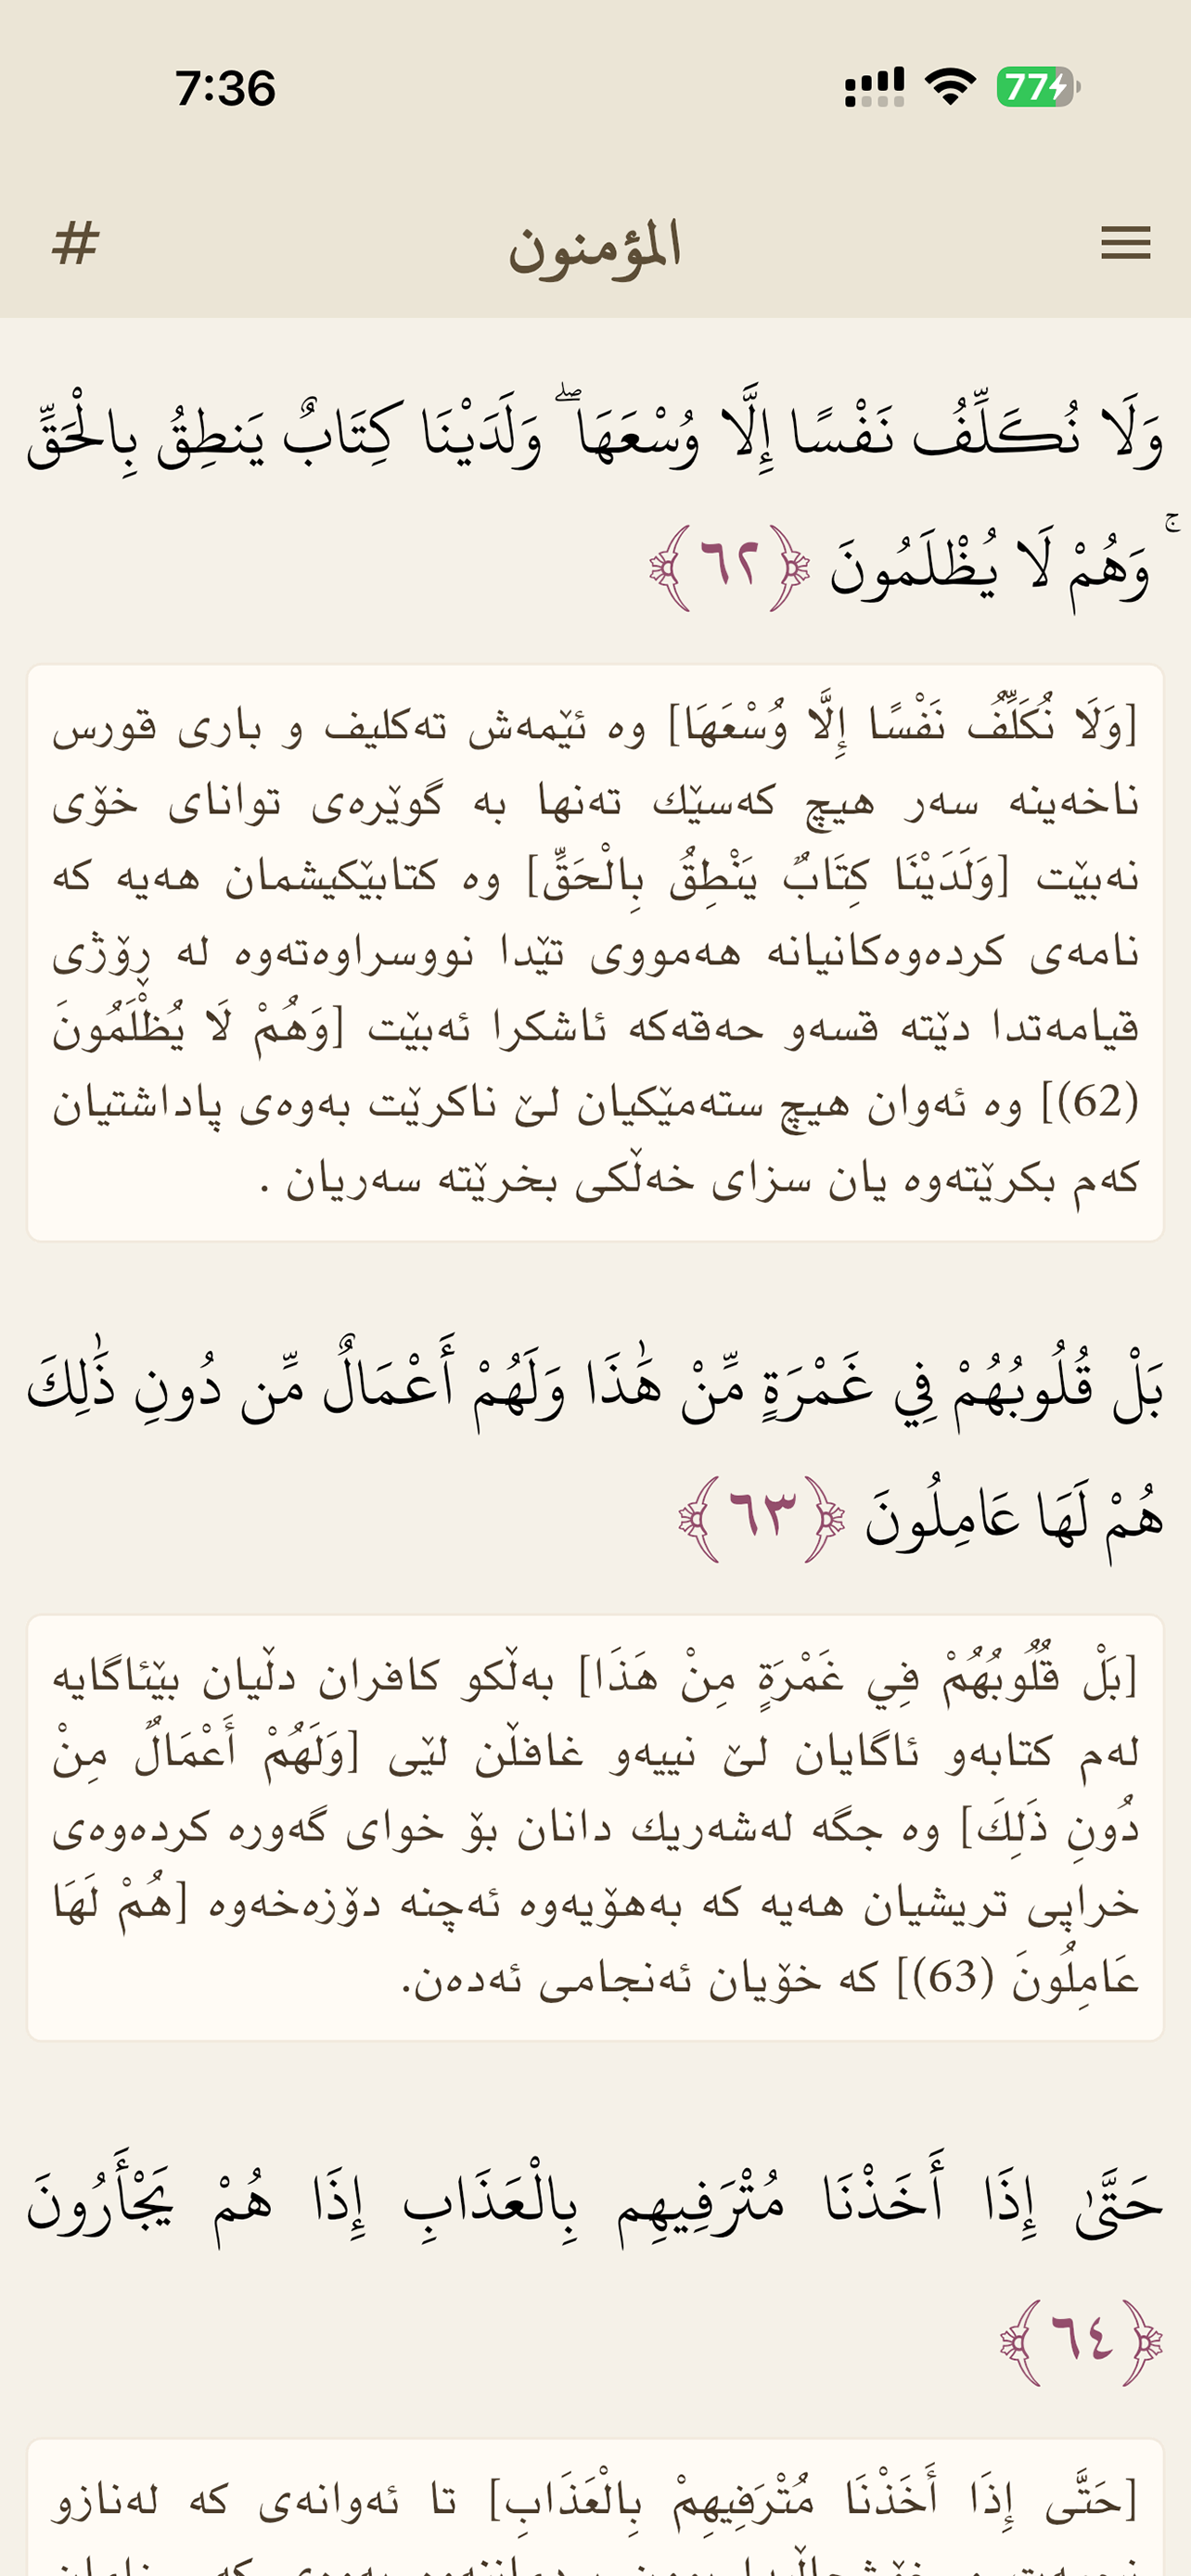 7:36
77
#
المؤمنون
وَلَا نُكَلِّفُ نَفْسًا إِلَّا وُسْعَهَا ۖ وَلَدَيْنَا كِتَابٌ يَنطِقُ بِالْحَقِّ
ۚ وَهُمْ لَا يُظْلَمُونَ ﴿٦٢﴾
[وَلَا نُكَلِّفُ نَفْسًا إِلَّا وُسْعَهَا] وە ئێمەش تەكلیف و باری قورس
ناخەینە سەر هیچ كەسێك تەنها بە گوێرەی توانای خۆی
نەبێت [وَلَدَيْنَا كِتَابٌ يَنْطِقُ بِالْحَقِّ] وە كتابێكیشمان هەیە كە
نامەی كردەوەكانیانە هەمووی تێدا نووسراوەتەوە لە ڕۆژی
قیامەتدا دێتە قسەو حەقەكە ئاشكرا ئەبێت [وَهُمْ لَا يُظْلَمُونَ
(62)] وە ئەوان هیچ ستەمێكیان لێ ناكرێت بەوەی پاداشتیان
كەم بكرێتەوە یان سزای خەڵكی بخرێتە سەریان .
بَلْ قُلُوبُهُمْ فِي غَمْرَةٍ مِّنْ هَٰذَا وَلَهُمْ أَعْمَالٌ مِّن دُونِ ذَٰلِكَ
هُمْ لَهَا عَامِلُونَ ﴿٦٣﴾
[بَلْ قُلُوبُهُمْ فِي غَمْرَةٍ مِنْ هَذَا] بەڵكو كافران دڵیان بێئاگایە
لەم كتابەو ئاگایان لێ نییەو غافڵن لێی [وَلَهُمْ أَعْمَالٌ مِنْ
دُونِ ذَلِكَ] وە جگە لەشەریك دانان بۆ خوای گەورە كردەوەی
خراپی تریشیان هەیە كە بەهۆیەوە ئەچنە دۆزەخەوە [هُمْ لَهَا
عَامِلُونَ (63)] كە خۆیان ئەنجامی ئەدەن.
حَتَّىٰ إِذَا أَخَذْنَا مُتْرَفِيهِم بِالْعَذَابِ إِذَا هُمْ يَجْأَرُونَ
﴿٦٤﴾
[حَتَّى إِذَا أَخَذْنَا مُتْرَفِيهِمْ بِالْعَذَابِ] تا ئەوانەی كە لەنازو